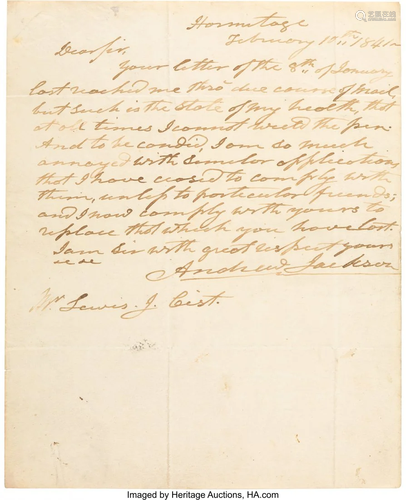 Hermitage
February 10th 1841
Dear Sir,
Your letter of the 8th of January
last reached me thro due course of mail,
but such is the state of my health, that
at all times I cannot wield the pen.
And to be candid, I am so much
annoyed with similar applications
that I have ceased to comply with
them, unless to particular friends;
and I now comply with yours to
replace that which you have lost.
I am sir with great respect yours
Andrew Jackson
Mr. Lewis. J. Cist.
Imaged by Heritage Auctions, HA.com